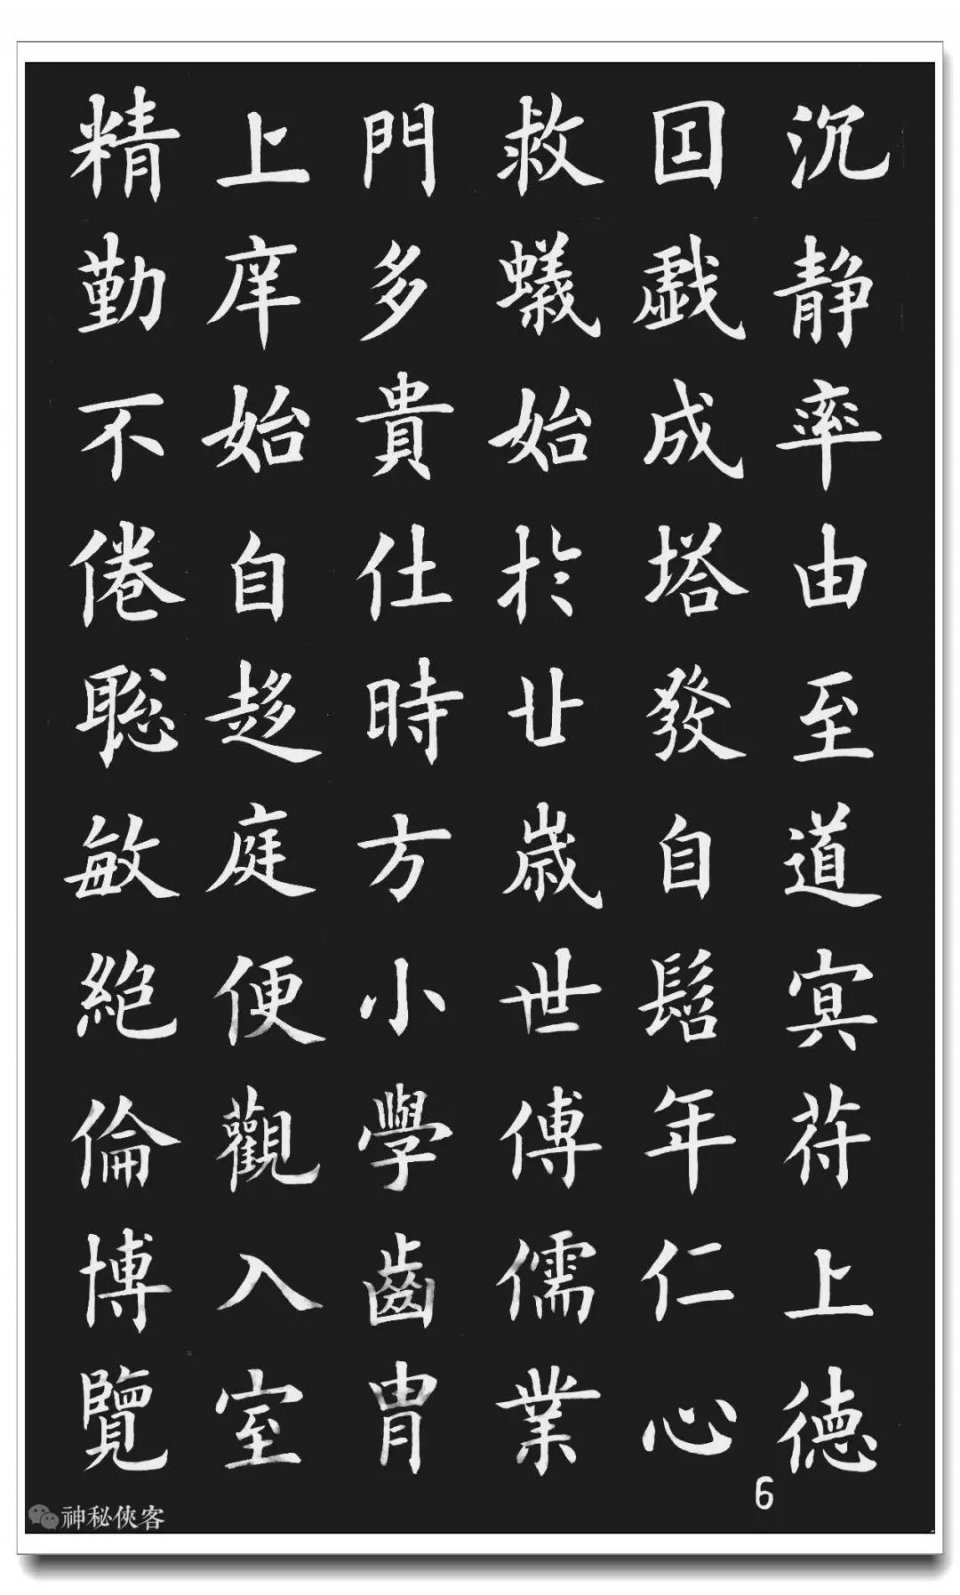 沉静率由至道冥苻上德
因戲成塔發自髫年仁心
救蟻始於廿歲世傳儒業
門多貴仕時方小學齒胄
上庠始自趍庭便觀入室
精勤不倦聡敏絶倫博覽
6
神秘侠客